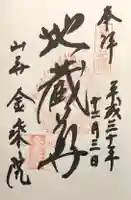 奉拝
平成三十年
十二月三日
地蔵尊
山谷 金乗院